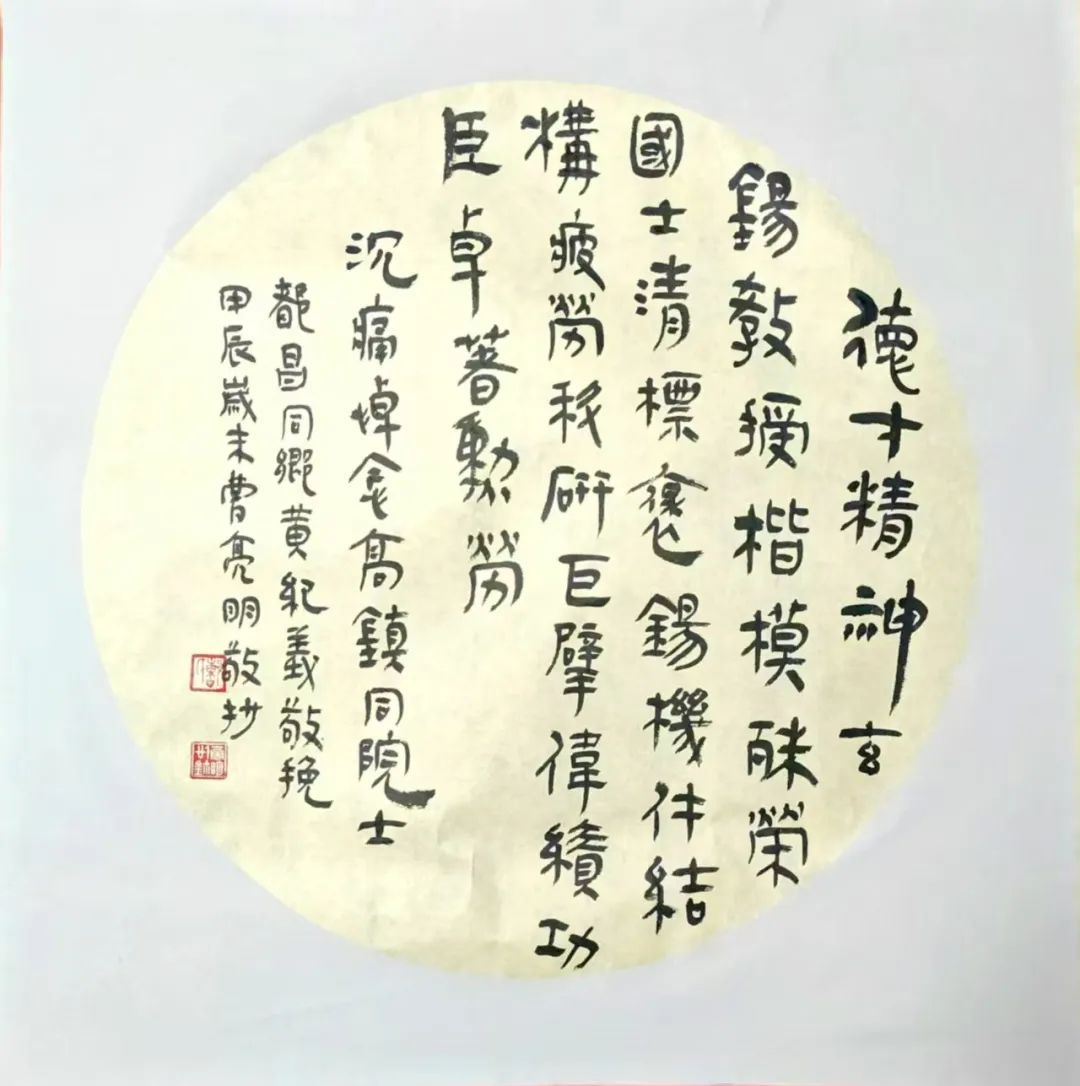 德才精神玄
錫教授楷模殊榮
國士清標褒錫機件結
構疲勞研巨擘偉績功
臣卓著勳勞
沉痛悼念高鎮同院士
都昌同鄉黃紀義敬挽
甲辰歲末曹亮明敬抄